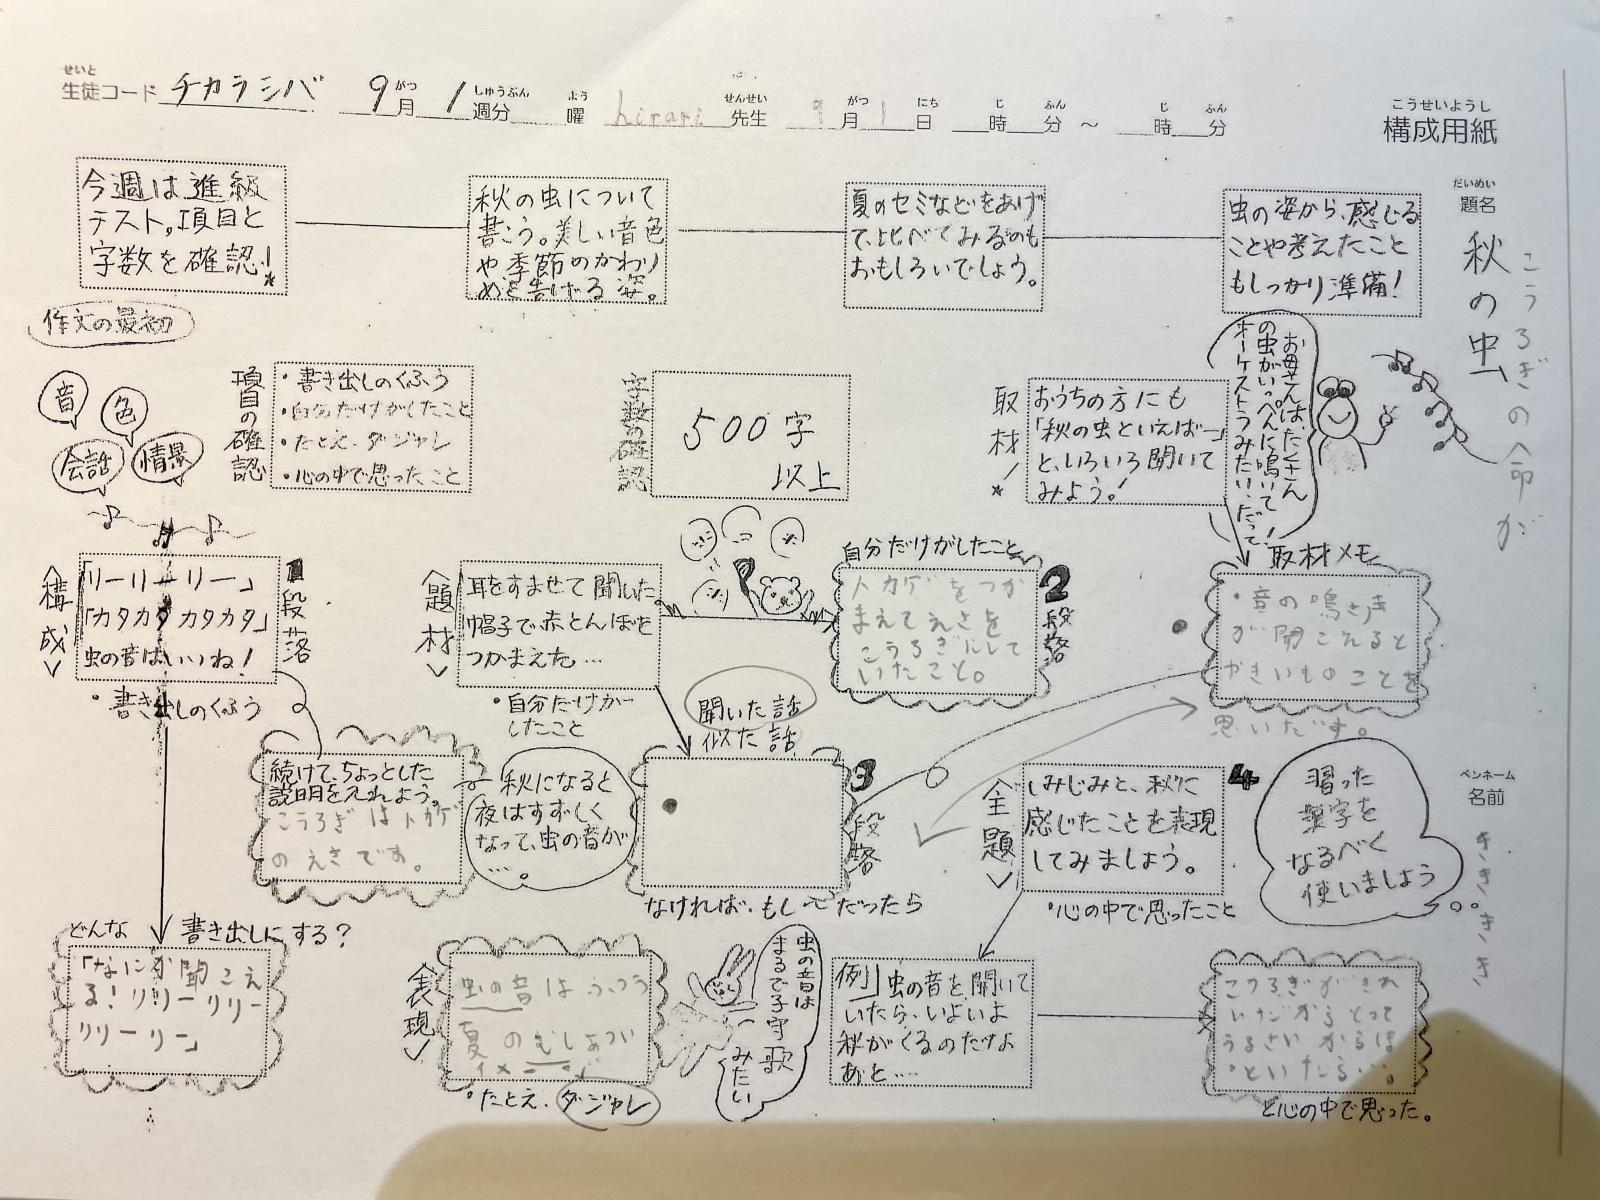 せいと
生徒コード チカラシバ 9月 1週分 曜 hirari 先生 9月1日 時 分 ～ 時 分
がつ しゅうぶん よう せんせい がつ にち じ ふん じ ふん
こうせいようし
構成用紙
だいめい
題名
秋の虫
こうろぎの命が
ペンネーム
名前
きききき
今週は進級
テスト。項目と
字数を確認!
秋の虫について
書こう。美しい音色
や季節のかわり
めを告げる姿。
夏のセミなどをあげ
て、比べてみるのも
おもしろいでしょう。
虫の姿から、感じる
ことや考えたこと
もしっかり準備!
作文の最初
音
色
会話
情景
項目の確認
・書き出しのくふう
・自分だけがしたこと
・たとえ、ダジャレ
・心の中で思ったこと
字数の確認
500字
以上
取材!
おうちの方にも
「秋の虫といえば―」
と、いろいろ聞いて
みよう!
お母さんは、たくさん
の虫がいっぺんに鳴いて
オーケストラみたい、だって!
〈構成〉
「リーリーリー」
「カタカタカタカタ」
虫の音はいいね!
1段落
・書き出しのくふう
〈題材〉
耳をすませて聞いた
帽子で赤とんぼを
つかまえた…
・自分だけが
したこと
自分だけがしたこと
トカゲをつか
まえてえさを
こうろぎにして
いたこと。
2段落
取材メモ
・音の鳴き声
が聞こえると
やきいものことを
思いだす。
続けて、ちょっとした
説明を入れよう。
こうろぎはトカゲ
のえさです。
秋になると
夜はすずしく
なって、虫の音が
…。
聞いた話
似た話
3段落
なければ、もし〜だったら
〈主題〉
しみじみと、秋に
感じたことを表現
してみましょう。
4
・心の中で思ったこと
習った
漢字を
なるべく
使いましょう
どんな書き出しにする?
「なにか聞こえ
る!リリーリリー
リリーリー」
〈表現〉
虫の音はふつう
夏のむしあつい
・たとえ、ダジャレ
虫の音は
まるで子守歌
みたい
例 虫の音を聞いて
いたら、いよいよ
秋がくるのだなよ
あと…
と心の中で思った。